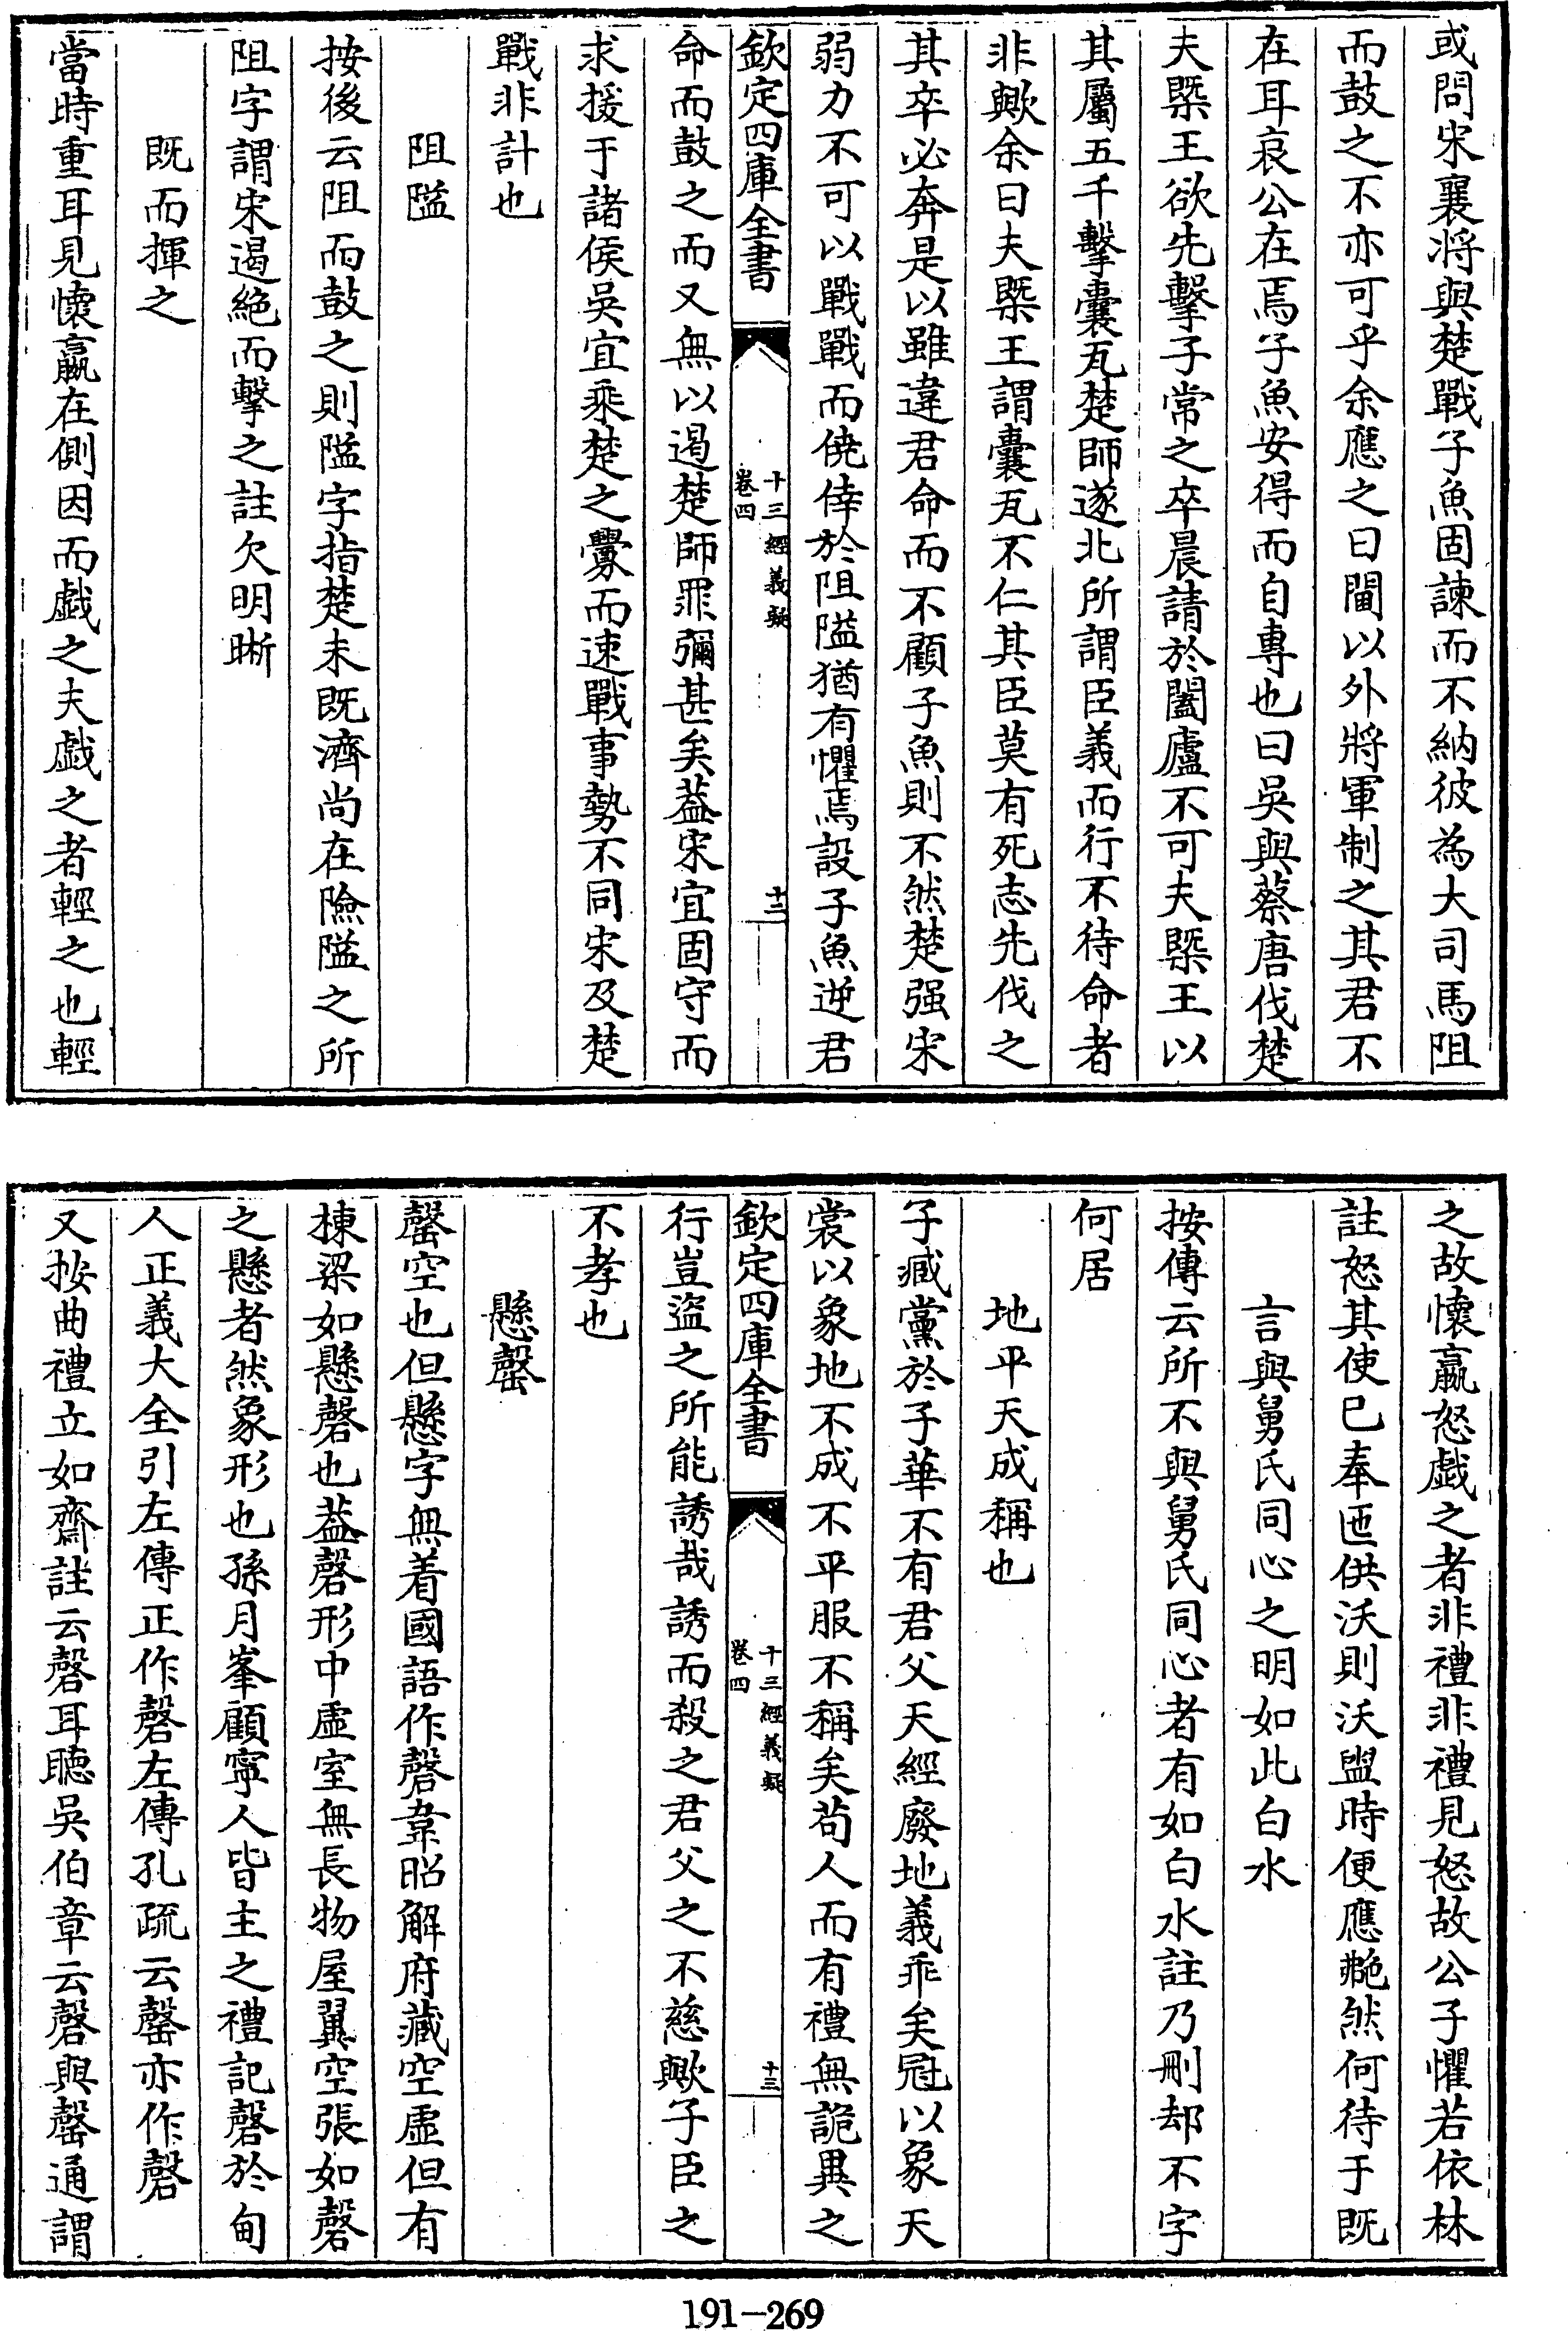 或問宋襄将與楚戰子魚固諫而不納彼為大司馬阻
而鼓之不亦可乎余應之曰閫以外將軍制之其君不
在耳哀公在焉子魚安得而自專也曰吳與蔡唐伐楚
夫槩王欲先擊子常之卒晨請於闔廬不可夫槩王以
其屬五千擊囊瓦楚師遂北所謂臣義而行不待命者
非歟余曰夫槩王謂囊瓦不仁其臣莫有死志先伐之
其卒必奔是以雖違君命而不顧子魚則不然楚强宋
弱力不可以戰戰而僥倖於阻隘猶有懼焉設子魚逆君
欽定四庫全書
十三經義疑
卷四
十二
命而鼓之而又無以遏楚師罪彌甚矣葢宋宜固守而
求援于諸侯吳宜乘楚之釁而速戰事勢不同宋及楚
戰非計也
阻隘
按後云阻而鼓之則隘字指楚未既濟尚在險隘之所
阻字謂宋遏絶而擊之註欠明晰
既而揮之
當時重耳見懷嬴在側因而戯之夫戯之者輕之也輕
之故懷嬴怒戯之者非禮非禮見怒故公子懼若依林
註怒其使巳奉匜供沃則沃盥時便應艴然何待于既
言與舅氏同心之明如此白水
按傳云所不與舅氏同心者有如白水註乃刪却不字
何居
地平天成稱也
子臧黨於子華不有君父天經廢地義乖矣冠以象天
裳以象地不成不平服不稱矣苟人而有禮無詭異之
欽定四庫全書
十三經義疑
卷四
十三
行豈盜之所能誘哉誘而殺之君父之不慈歟子臣之
不孝也
懸罄
罄空也但懸字無着國語作磬韋昭解府藏空虛但有
棟梁如懸磬也葢磬形中虛室無長物屋翼空張如磬
之懸者然象形也孫月峯顧寧人皆主之禮記磬於甸
人正義大全引左傳正作磬左傳孔疏云罄亦作磬
又按曲禮立如齋註云磬耳聽吳伯章云磬與罄通謂
191-269